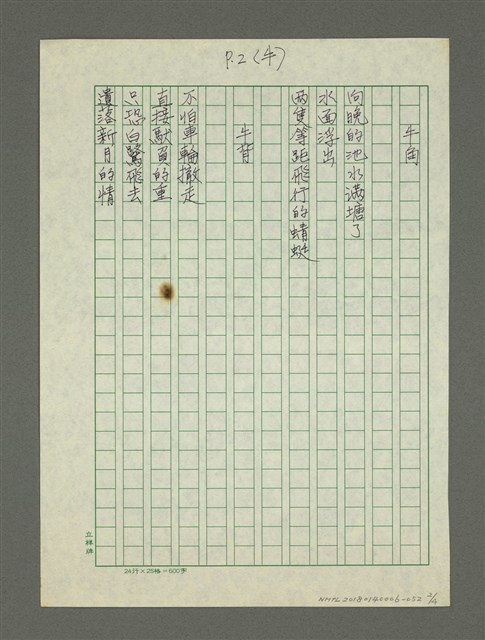 P.2 (牛)
牛角
向晚的池水满塘了
水面浮出
两隻等距飛行的蜻蜓
牛背
不怕車輪撤走
直接馱負的重
只恐白鷺飛去
遺落新月的情
立樺牌
24行×25格=600字
NMTL20180140006-052 2/4